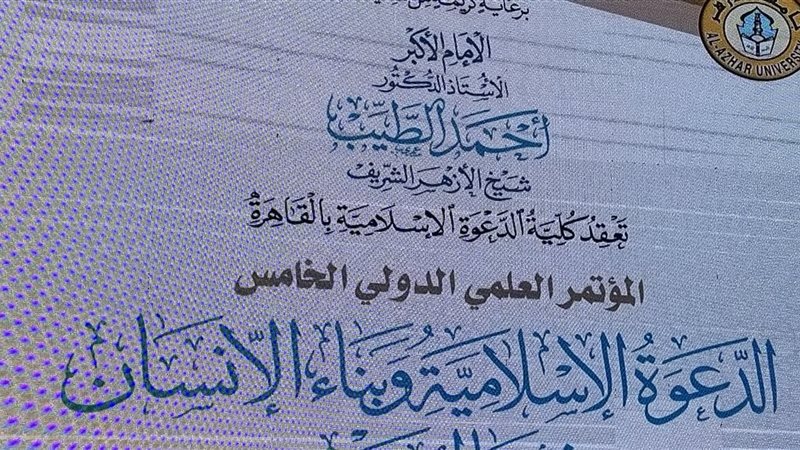 برعاية كريمة من
الإمام الأكبر
الأستاذ الدكتور
أحمد الطيب
شيخ الأزهر الشريف
تعقد كلية الدعوة الإسلامية بالقاهرة
المؤتمر العلمي الدولي الخامس
الدعوة الإسلامية وبناء الإنسان
AL-AZHAR UNIVERS